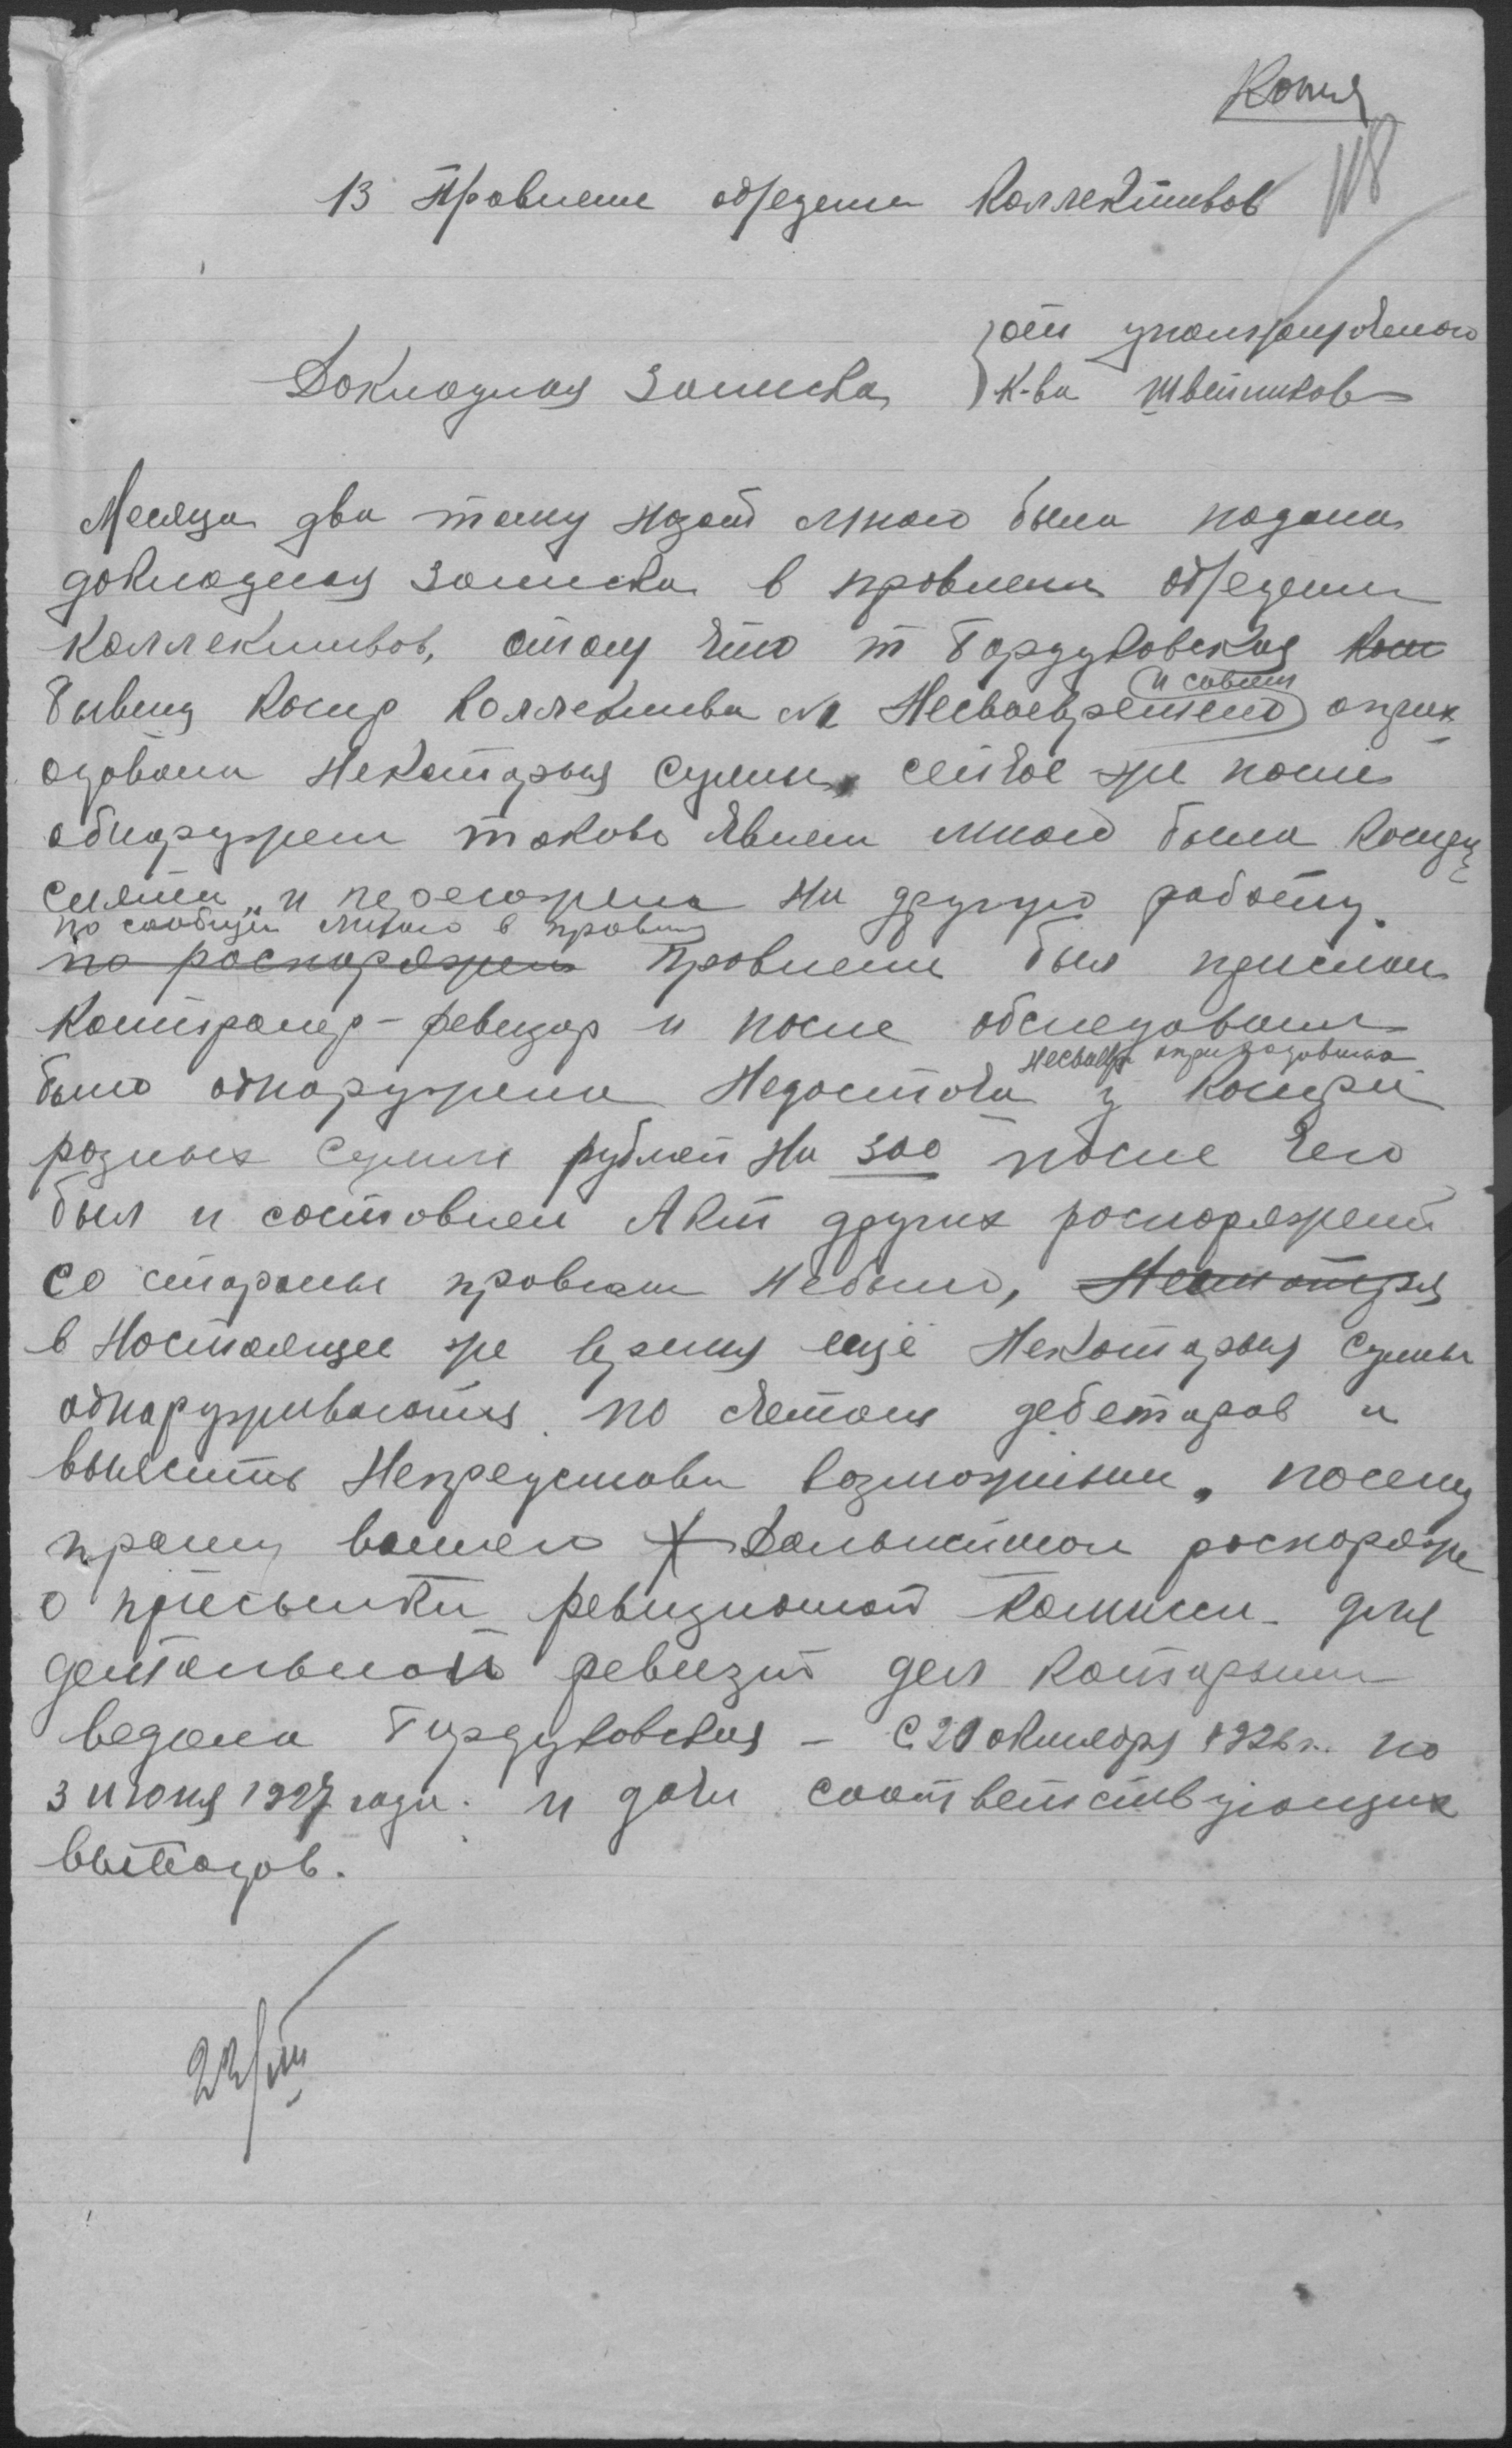 Копия
118
В Правление объедения Коллективов
от уполномоченого
Докладная записка
К-ва Швейников
Месяца два тому назад мною была подана
докладная записка в правление объедения
коллективов, о том что т Бардуковская
и совсем
бывшая касир Коллектива Несвоевремено оприх
одовала Некоторыя суммы, сейчас же после
обнаружения таково явления мною была касирша
снята и переведена на другую работу.
по сообщен мною в правлен
по распоряжен Правлением был прислан
Контролер-ревизор и после обследования
несвоевр оприходована
было обнаружена Недостача у Касирши
разных сумм рублей На 300 после чего
был и составлен Акт других распоряжений
со стороны правления небыло, Несмотря
в Настоящее же время ещё Некоторыя суммы
обнаруживаются по счетам дебеторов и
выяснить Непредстави возможным, посему
прошу вашего дальнейшаго распоряже
о присылки ревизионой Комиссии для
детальной ревизий дел которыми
ведала Бардуковская - С 20 октября 1926 г. по
3 июня 1927 года. и дачи соответствующих
выводов.
22/VIII